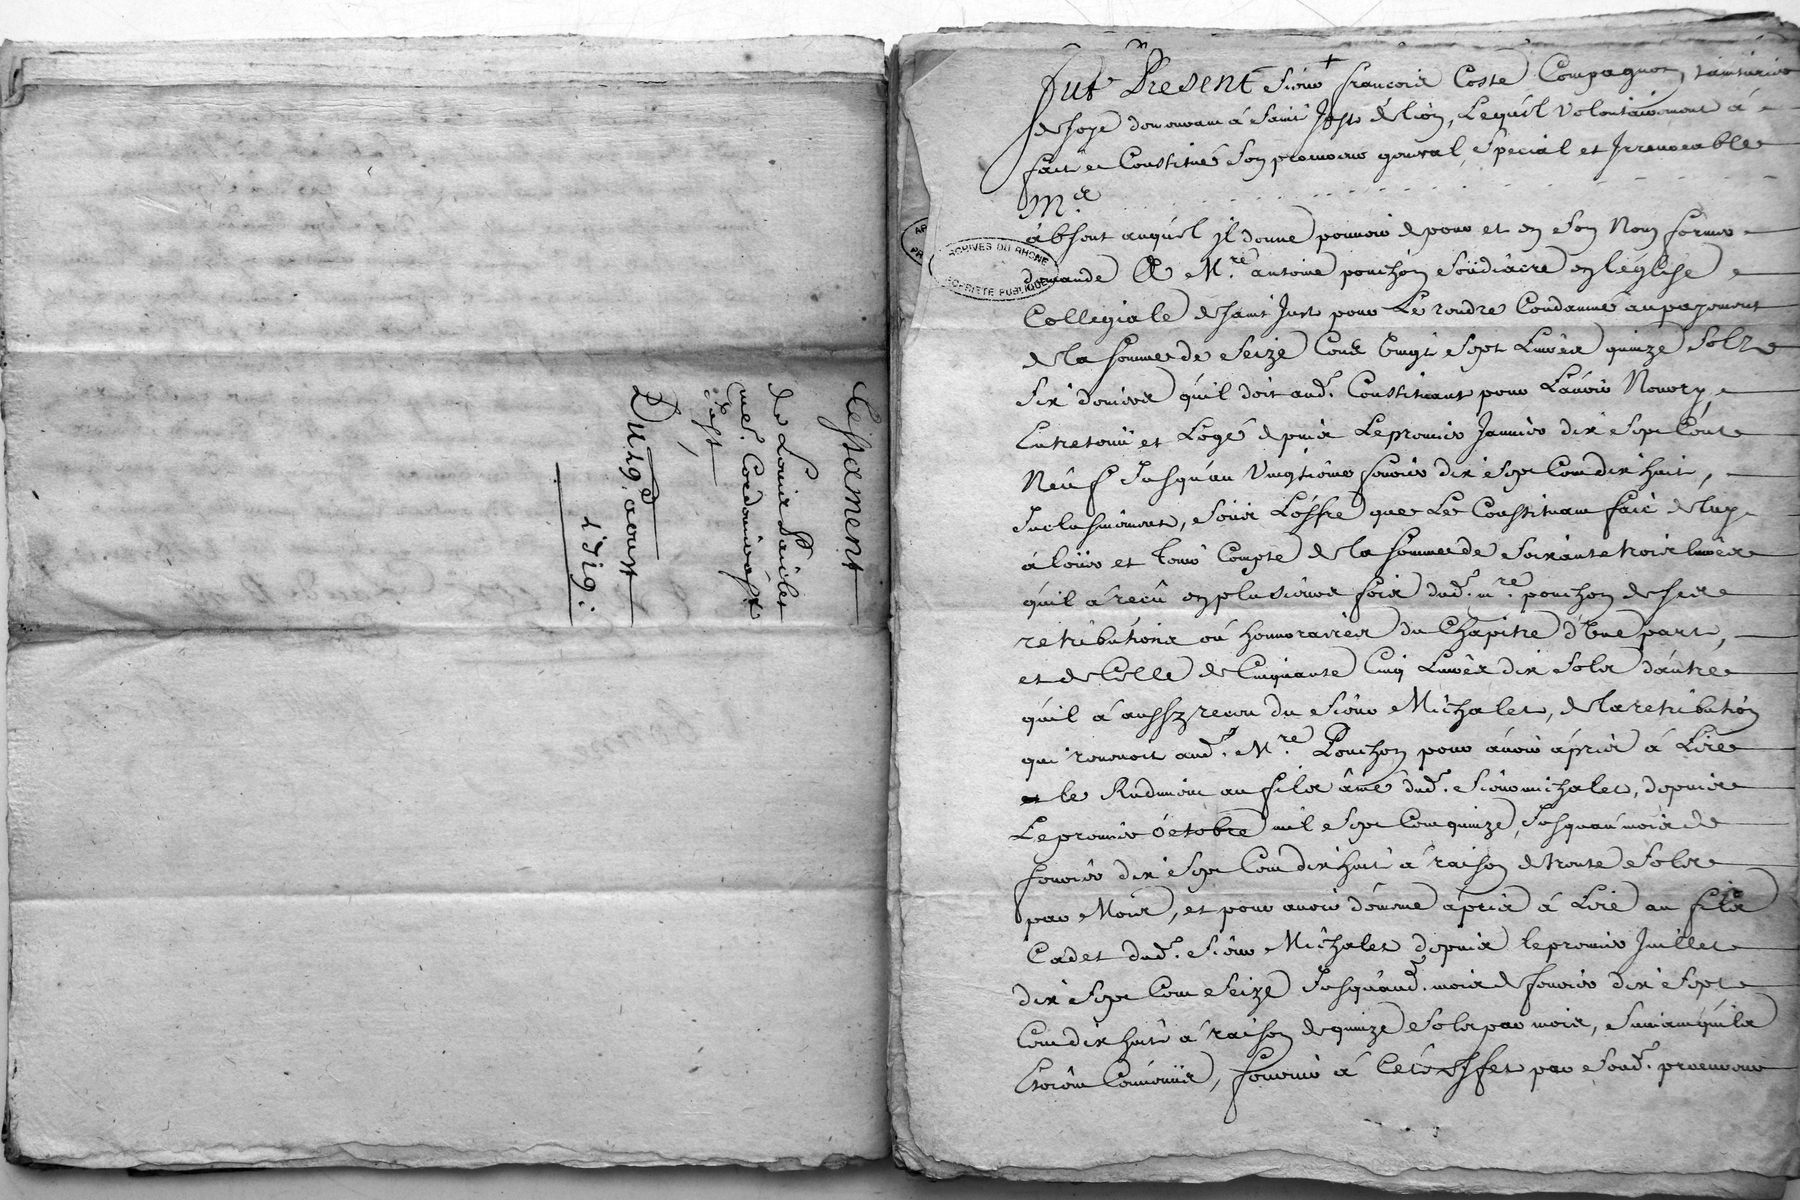 Testament
de Louis Pailet
me.e Cordonnier
Du 19.e aoust
1719:
ARCHIVES DU RHONE
PROPRIETE PUBLIQUE
Fut Present sieur françois Coste Compagnon, tainturier
de soye demeurant à saint Just de lion, Lequél volontairement à
fait et Constitué son procureur general, special et Irrevocable
M.e
absent auquél jl donne pouvoir de pour et en son Nom former
demande à M.re antoine ponchon soûdiacre en léglise
Collegiale de saint Just pour Le rendre Condamné au payement
de la somme de seize Cens vingt sept Livres quinze sols
six deniers quil doit aud. Constituant pour Lavoir Noury,
Entretenü et Logé depuis Le premier Janvier dix sept Cent
Neuf Jusquau vingtiême fevrier dix sept Cent dix huit,
Inclusivement, soûs Loffre que Le Constituant fait de luy
alloûer et tenir Compte de la somme de soixante trois livres
quil à reçû en plusieurs fois dud. m.re ponchon de ses
retributions où honnoraires du Chapitre d'Une part,
et de Celle de Cinquante Cinq Livres dix sols d'autre
quil à aussy receu du sieur Michalet, de la retribution
qui revenoit aud. M.re Ponchon pour avoir apris à Lire
le Rudiment au fils ainé dud. sieur michalet, depuis
Le premier octobre mil sept Cent quinze, Jusquau mois de
fevrier dix sept Cent dix huit à raison de trente sols
par Mois, et pour avoir de même apris à Lire au fils
Cadet dud. sieur Michalet depuis le premier Juillet
dix sept Cent seize Jusquaud. mois de fevrier dix sept
Cent dix huit à raison de quinze sols par mois, suivant quils
Etoient Convenus, fournir à Cet effet par sond. procureur